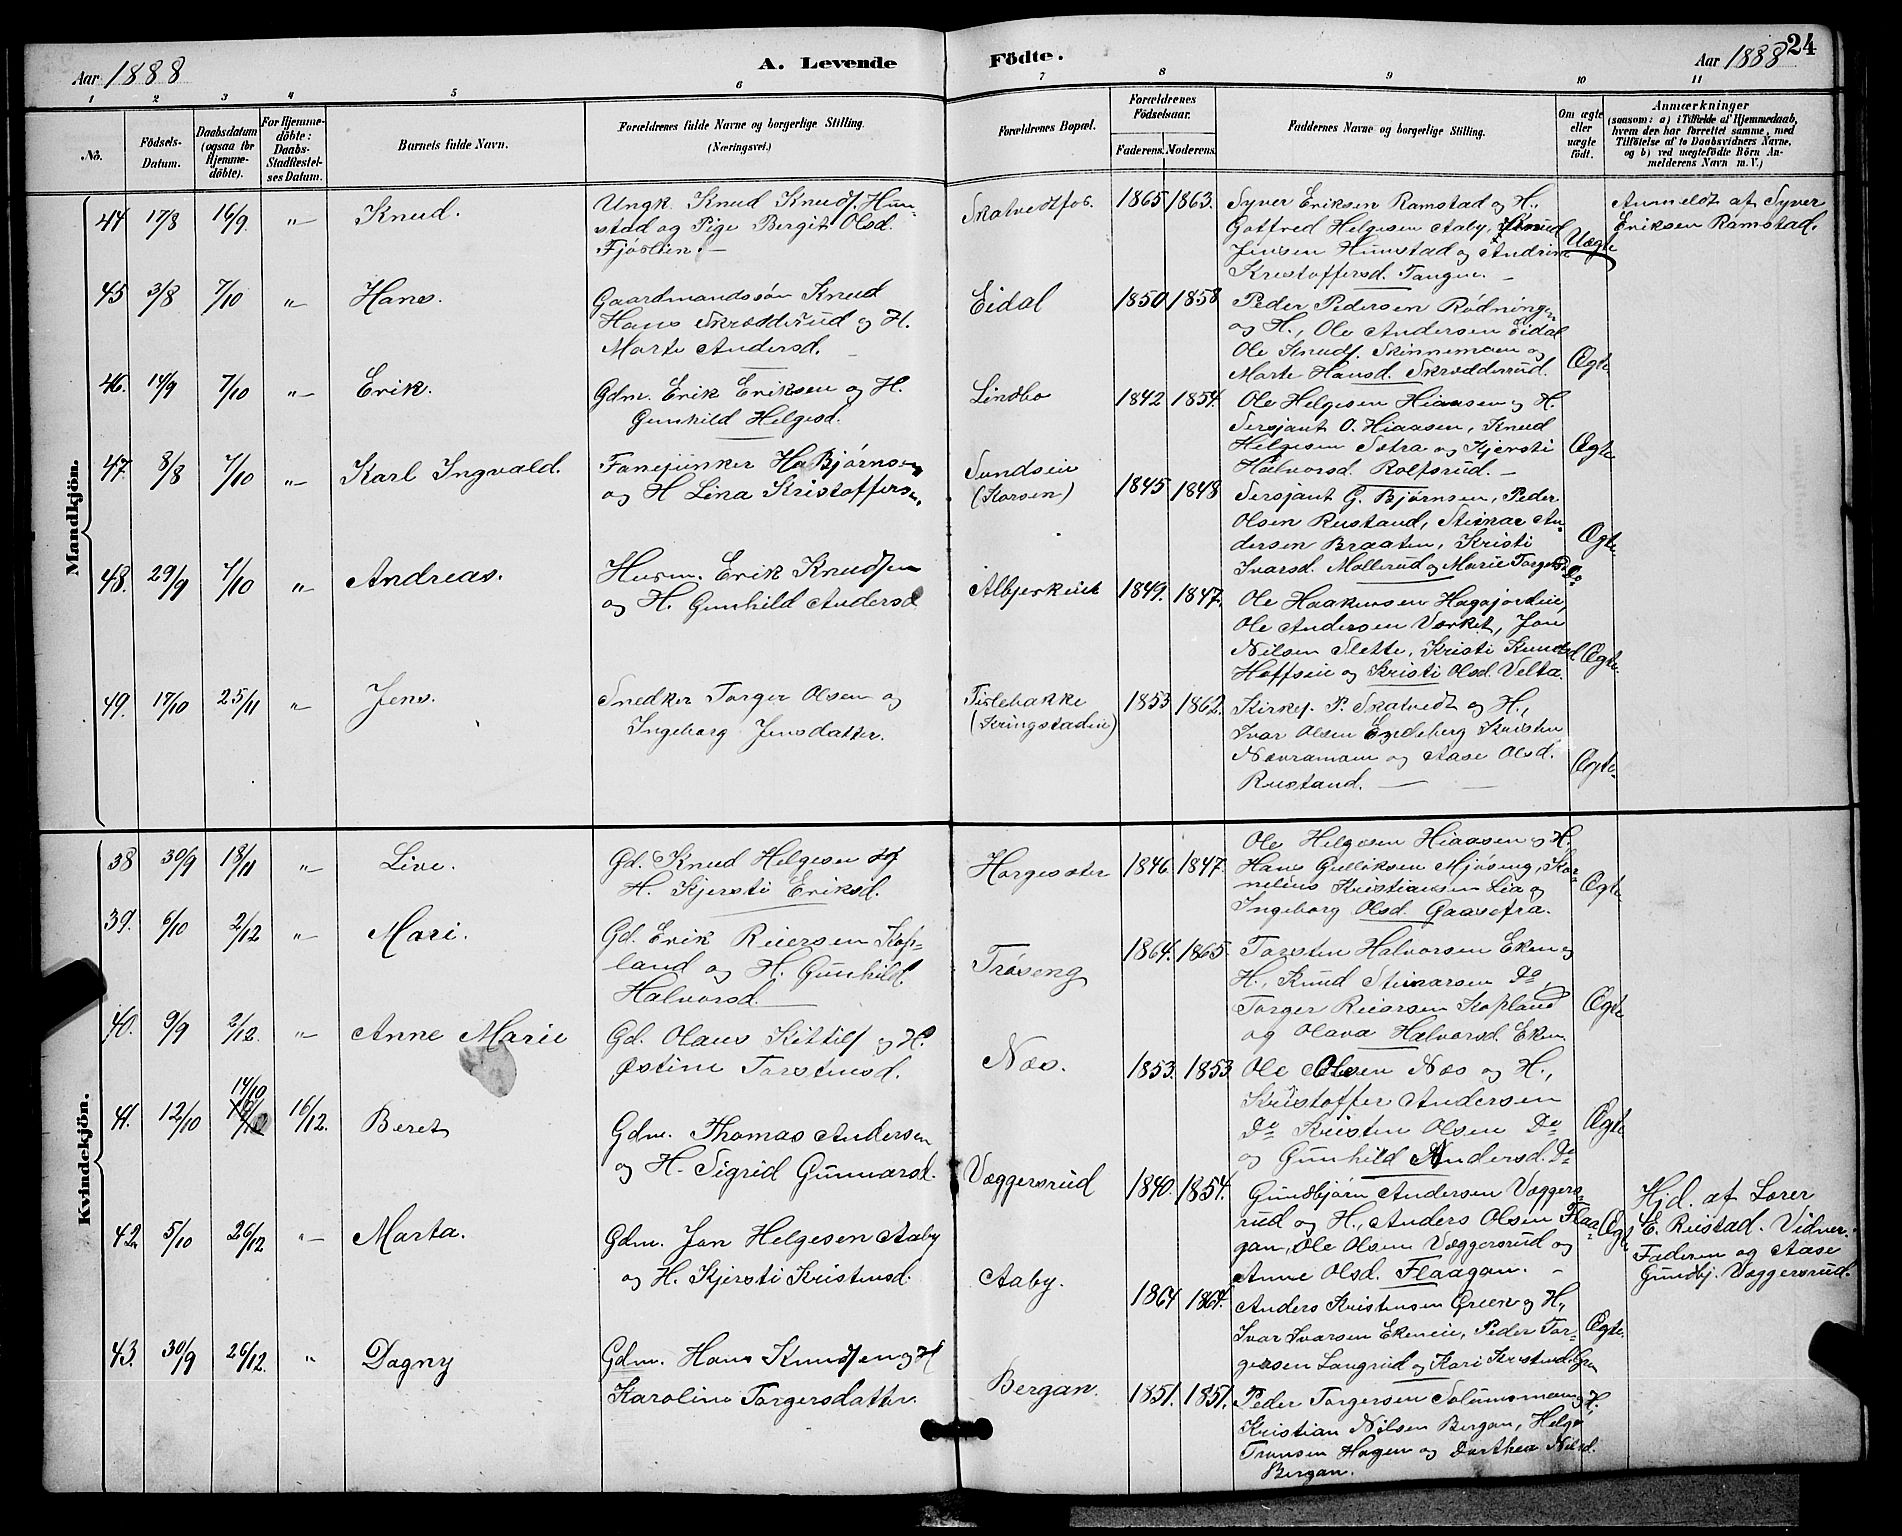 Aar 1888
A. Levende
Födte.
Aar 1888
24
1 2 3 4 5 6 7 8 9 10 11
No.
Födsels-
Datum.
Daabsdatum
(ogsaa for
Hjemme-
döbte).
For Hjemme-
döbte:
Daabs-
Stadfestel-
ses Datum.
Barnets fulde Navn.
Forældrenes fulde Navne og borgerlige Stilling.
(Næringsvei.)
Forældrenes Bopæl.
Forældrenes
Födselsaar.
Faderens. Moderens.
Faddernes Navne og borgerlige Stilling.
Om ægte
eller
uægte
födt.
Anmærkninger
(saasom: a) i Tilfælde af Hjemmedaab,
hvem der har forrettet samme, med
Tilföielse af to Daabsvidners Navne,
og b) ved uægtefödte Börn An-
melderens Navn m. V.)
Mandkjön.
44 17/8 16/9 " Knud.
Ungk. Knud Knuds. Hun-
stad og Pige Bergit Olsd.
Fjöslien. —
Skatvedtfos. 1865 1863.
Syver Eriksen Ramstad og H.,
Gotfred Helgesen Aaby, Knud
Jensen Hunstad og Andrine
Kristoffersd. Tangen. —
Uægte
Anmeldt af Syver
Eriksen Ramstad.
45 3/8 7/10 " Hans.
Gaardmandssön Knud
Hans Skrædderud og H.
Marte Andersd. —
Eidal 1850 1858
Peder Pedersen Rödning-
og H., Ole Andersen Eidal
Ole Knuds. Skinnemoen og
Marte Hansd. Skrædderud.
Ægte
46. 14/9 7/10 " Erik.
Gdm. Erik Eriksen og H.
Gunhild Helgesd.
Lindbo 1842 1854.
Ole Helgesen Hiaasen og H.
Sersjant O. Hiaasen, Knud
Helgesen Sstra og Kjersti
Halvorsd. Rolfsrud. —
Ægte
47. 8/8 7/10 " Karl Ingvald.
Fanejunker H. Bjørnsen
og H Lina Kristoffersn.
Sundseie
(Korsen)
1845 1848
Sersjant G. Bjørnsen, Peder
Olsen Rustand, Steinar An-
dersen Braaten, Kristi
Ivarsd. Mollerud og Marie Torgersd. Do
Ægte
48. 29/9 7/10 " Andreas.
Husm. Erik Knudsen
og H. Gunhild Andersd
Albjerkeie 1849. 1847.
Ole Haakensen Hagajordeie,
Ole Andersen Værket, Jon
Nilsen Slette, Kristi Knudsd
Hoffseie og Kristi Olsd. Velta.
Ægte
49. 17/10 25/11 " Jens.
Snedker Torger Olsen og
Ingeborg Jensdatter.
Tislebakke
(Kringstadeie)
1853 1862.
Kirkes. P. Skatvedt og H.,
Ivar Olsen Engeberg Kristen
Nævramoen og Aase Olsd.
Rustand. —
Ægte
Kvindekjön.
38 30/9 18/11 " Live.
Gd. Knud Helgesen og
H. Kjersti Eriksd.
Horgesæter 1846. 1847.
Ole Helgesen Hiaasen og H.
Hans Gulliksen Mjöseng, Kor-
nelius Kristiansen Lia og
Ingeborg Olsd. Gaasefra.
Ægte
39. 6/10 2/12 " Mari.
Gd. Erik Reiersen Kop-
land og H. Gunhild
Halvorsd.
Tröseng 1864. 1865.
Torsten Halvorsen Eken og
H., Knud Steinarsen Do,
Torger Reiersen Kopland
og Olava Halvorsd. Eken
Ægte
40. 9/9 2/12. " Anne Marie
Gd. Olaus Kittils og H.
Østine Torstensd.
Næs. 1853. 1853
Ole Olsen Næs og H.,
Kristoffer Andersen
Do Kristen Olsen Do
og Gunhild Andersd. Do
Ægte
41. 12/10 14/10 16/12. Beret
Gdm. Thomas Andersen
og H. Sigrid Gunnarsd.
Væggersrud 1840. 1854.
Gundbjørn Andersen Væggers-
rud og H., Anders Olsen Flaa-
gan, Ole Olsen Væggersrud og
Anne Olsd. Flaagan. —
Ægte
Hjd. af Lærer
E. Rustad. Vidner:
Faderen og Aase
Gundbj. Væggersrud.
42. 5/10 26/12 " Marta.
Gdm. Jon Helgesen Aaby
og H. Kjersti Kristensd.
Aaby. 1864 1864.
Anders Kristensen Green og H.,
Ivar Ivarsen Ekeneie, Peder Tor-
gersen Langrud og Kari Kristensd. Gren
Ægte.
43. 30/9 26/12. " Dagny
Gdm. Hans Knudsen og H
Karoline Torgersdatter.
Bergan. 1851. 1851.
Peder Torgersen Solumsmoen og H.,
Kristian Nilsen Bergan, Helge
Tronsen Hagen og Dorthea Nilsd.
Bergan.